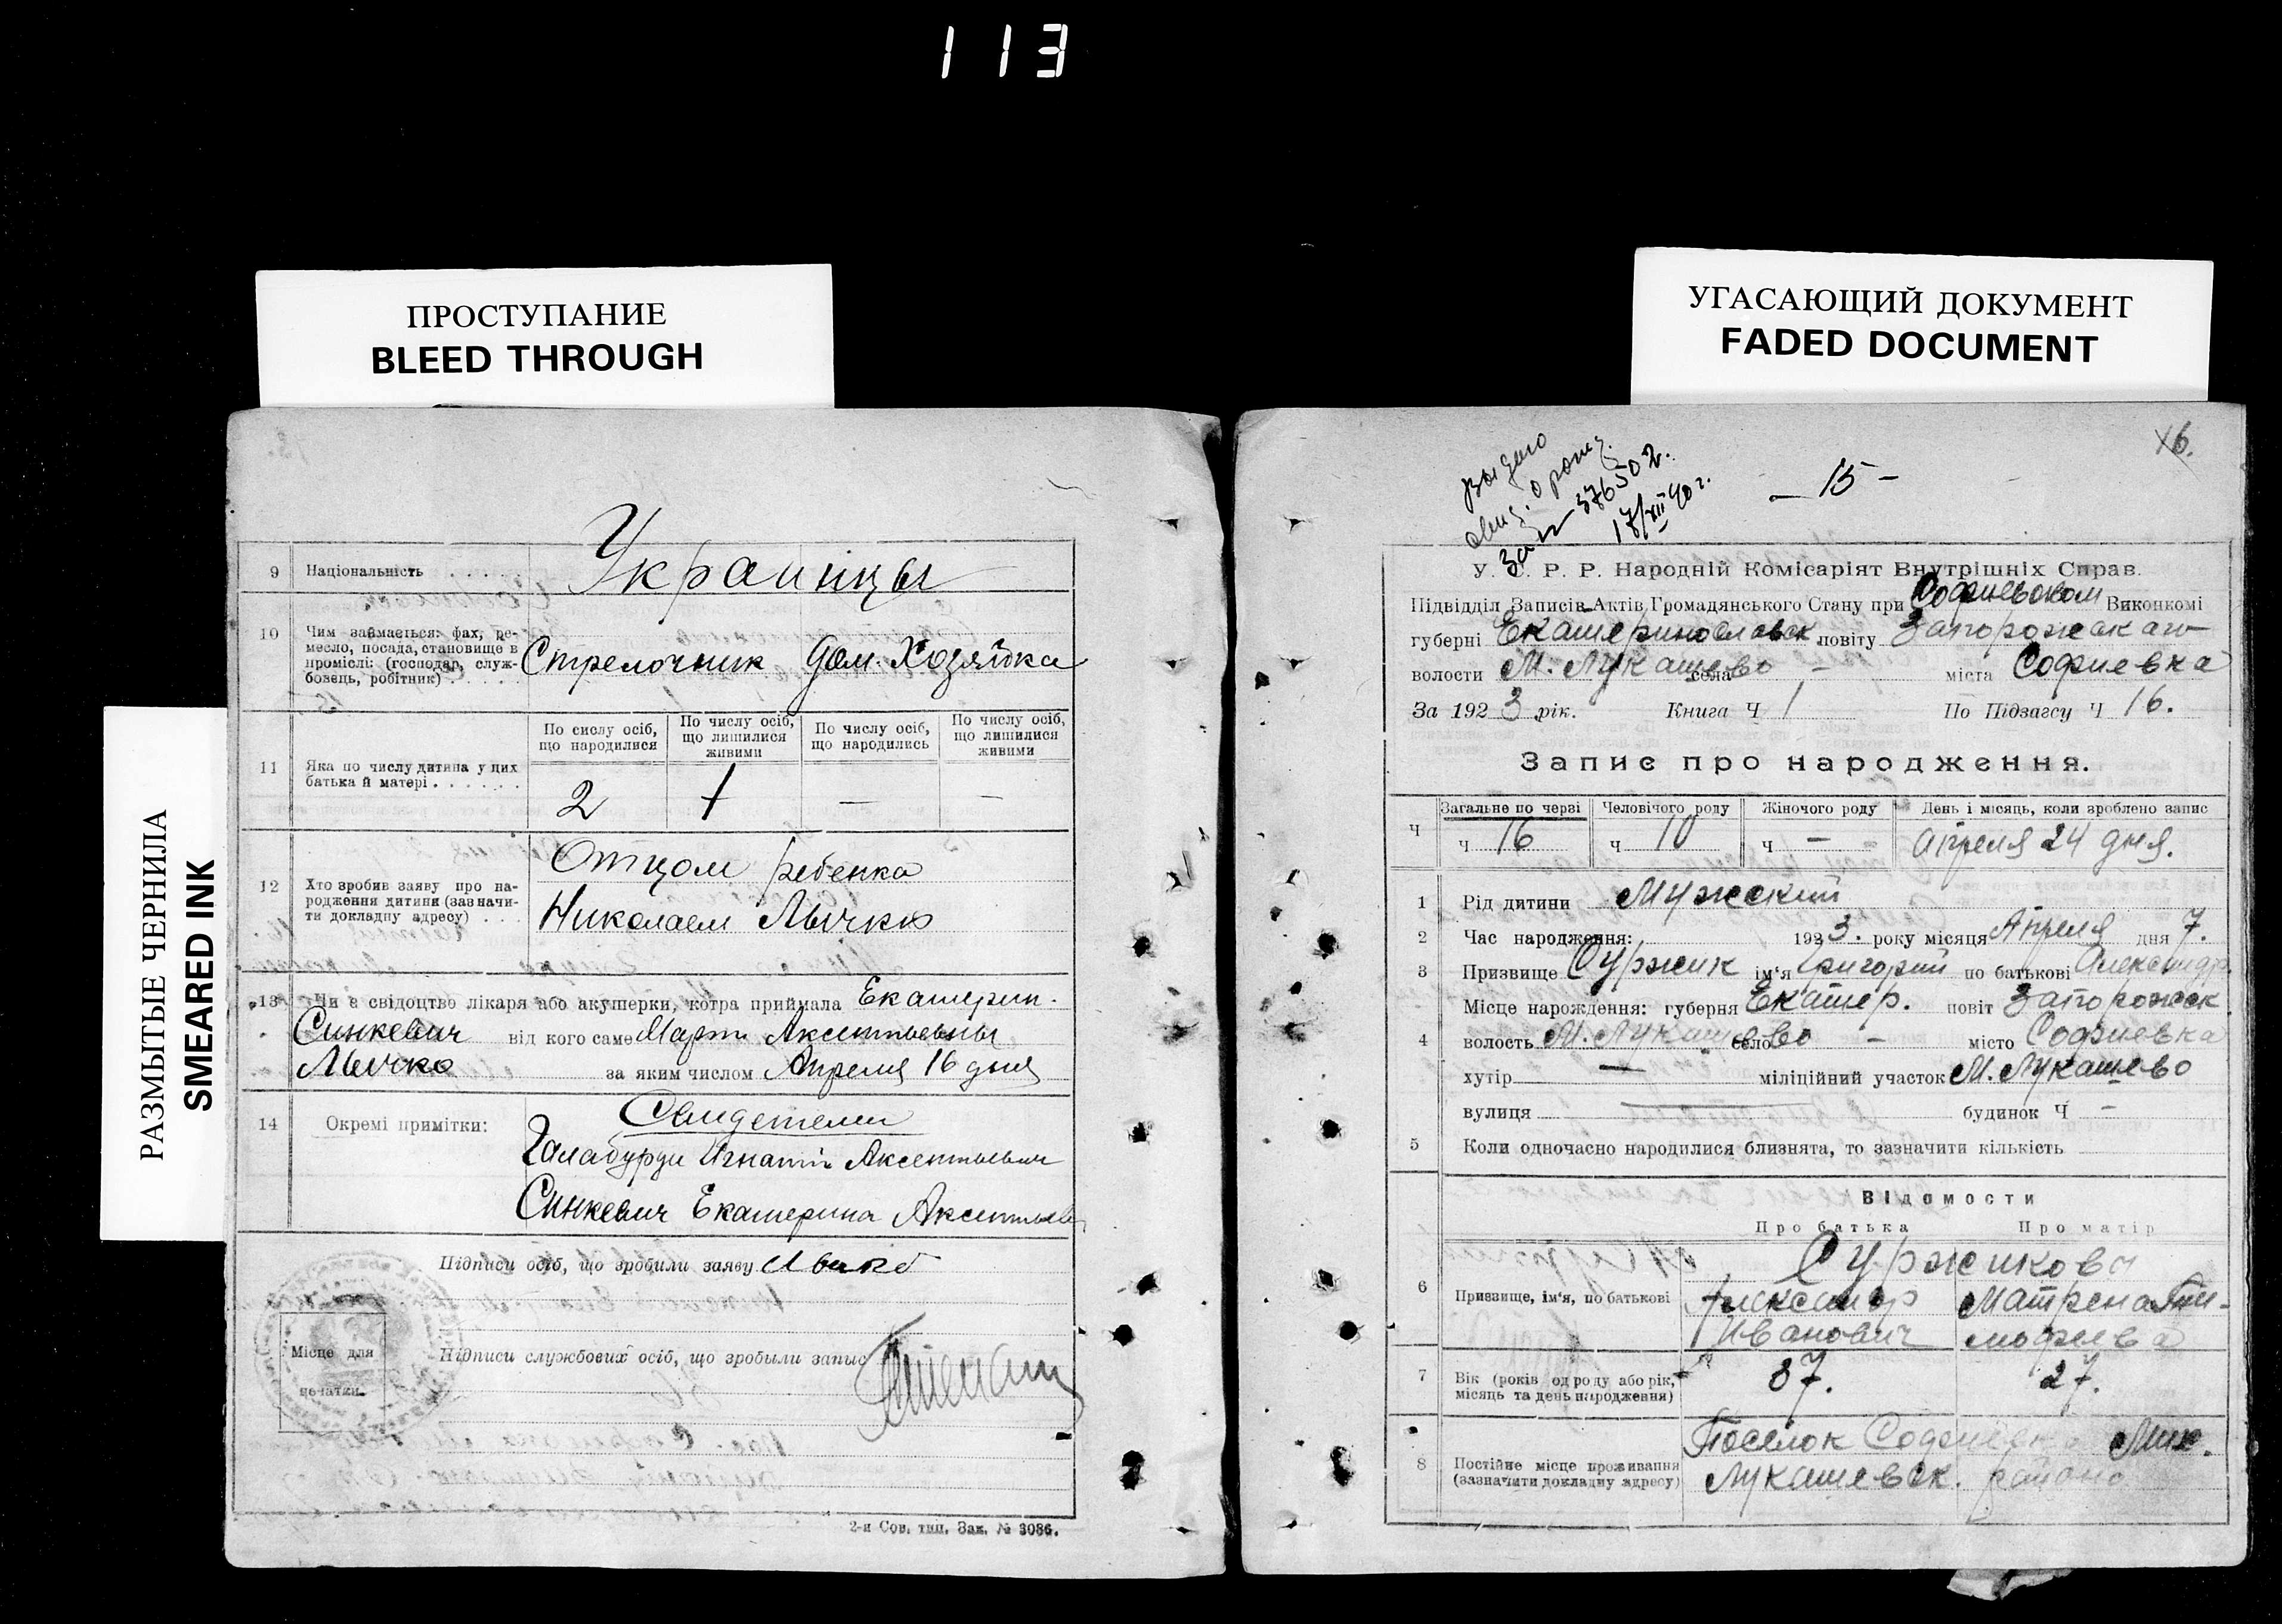 113
ПРОСТУПАНИЕ
BLEED THROUGH
РАЗМЫТЫЕ ЧЕРНИЛА
SMEARED INK
9 Національність . . . . . Украинцы
10 Чим займається: фах, ре-
месло, посада, становище в
промислі: (господар, служ-
бовець, робітник) . . . . . Стрелочник Дом. Хозяйка
11 Яка по числу дитина у цих
батька й матері . . . . . .
По сислу осіб, що народилися
По числу осіб, що лишилися живими
По числу осіб, що народились
По числу осіб, що лишилися живими
2 1 — —
12 Хто зробив заяву про на-
родження дитини (зазначи-
ти докладну адресу) . . .
Отцом ребенка
Николаем Лычко
13 Чи є свідоцтво лікаря або акушерки, котра приймала Екатерин.
Синкевич від кого саме Марти Аксентьевны
Лычко за яким числом Апреля 16 дня
14 Окремі примітки: Свидетели
Галабурди Игнатій Аксентьевич
Синкевич Екатерина Аксентьев
Підписи осіб, що зробили заяву
Місце для
печатки.
Підписи службових осіб, що зробыли запис
2-я Сов. тип. Зак. № 3086.
УГАСАЮЩИЙ ДОКУМЕНТ
FADED DOCUMENT
16.
— 15 —
выдано
свид. о рожд.
за № 376502.
17/XII 40 г.
У. С. Р. Р. Народній Комісаріят Внутрішніх Справ.
Підвідділ Записів Актів Громадянського Стану при Софиевском Виконкомі
губерні Екатеринославск повіту Запорожскаго
волости М. Лукашево села — міста Софиевка
За 1923 рік. Книга Ч 1 По Підзагсу Ч 16.
Запис про народження.
Ч
Загальне по черзі Человічого роду Жіночого роду День і місяць, коли зроблено запис
ч 16 ч 10 ч — Апреля 24 дня.
1 Рід дитини Мужский
2 Час народження: 1923. року місяця Апреля дня 7.
3 Призвище Суржик ім'я Григорий по батькові Александр.
4 Місце нарождення: губерня Екатер. повіт Запорожск
волость М. Лукашево село — місто Софиевка
хутір — міліційний участок М. Лукашево
вулиця — будинок Ч —
5 Коли одночасно народилися близнята, то зазначити кількість
Відомости
Про батька Про матір
6 Призвище, ім'я, по батькові
Суржиковы
Александр Матрена Тим-
Иванович мофиева
7 Вік (років од роду або рік,
місяць та день народження) 37. 27.
8 Постійне місце проживання
(зазначити докладну адресу)
Поселок Софиевка Мих.
Лукашевск. района